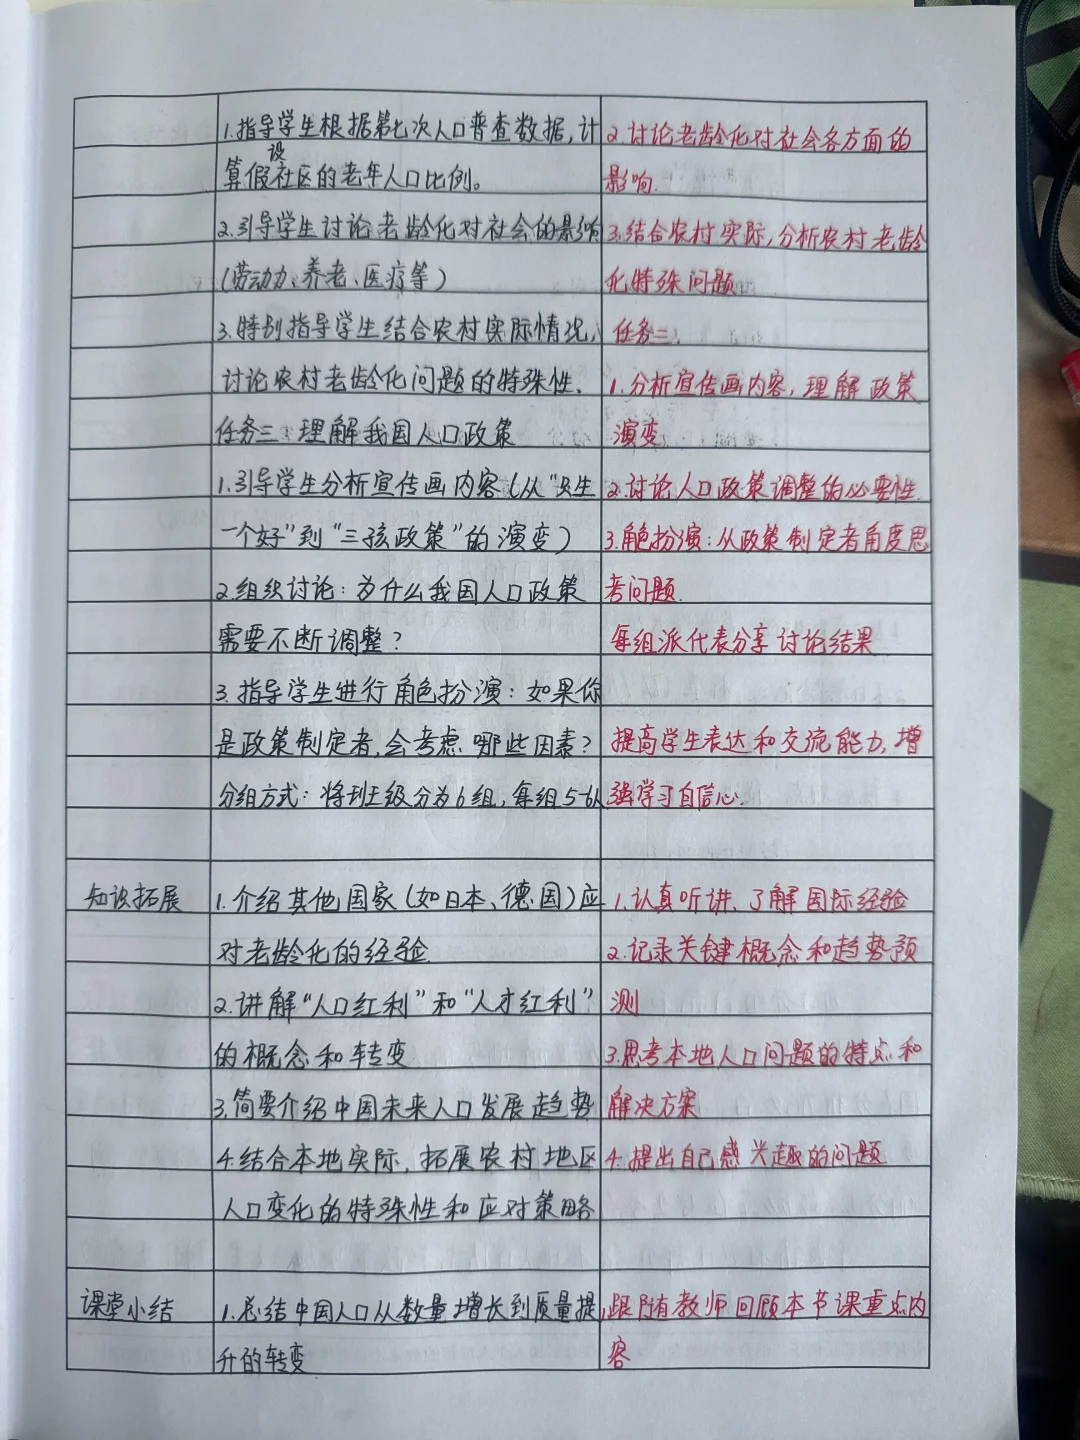 1.指导学生根据第七次人口普查数据,计
算假设社区的老年人口比例。
2.引导学生讨论老龄化对社会的影响
(劳动力、养老、医疗等)
3.特别指导学生结合农村实际情况,
讨论农村老龄化问题的特殊性.
任务三:理解我国人口政策
1.引导学生分析宣传画内容(从“只生
一个好”到“三孩政策”的演变)
2.组织讨论:为什么我国人口政策
需要不断调整?
3.指导学生进行角色扮演:如果你
是政策制定者,会考虑哪些因素?
分组方式:将班级分为6组,每组5-6人
2.讨论老龄化对社会各方面的
影响.
3.结合农村实际,分析农村老龄
化特殊问题
任务三:
1.分析宣传画内容,理解政策
演变
2.讨论人口政策调整的必要性.
3.角色扮演:从政策制定者角度思
考问题.
每组派代表分享讨论结果
提高学生表达和交流能力,增
强学习自信心.
知识拓展
1.介绍其他国家(如日本、德国)应
对老龄化的经验.
2.讲解“人口红利”和“人才红利”
的概念和转变
3.简要介绍中国未来人口发展趋势
4.结合本地实际,拓展农村地区
人口变化的特殊性和应对策略
1.认真听讲、了解国际经验
2.记录关键概念和趋势预
测
3.思考本地人口问题的特点和
解决方案
4.提出自己感兴趣的问题
课堂小结
1.总结中国人口从数量增长到质量提
升的转变
1.跟随教师回顾本节课重点内
容